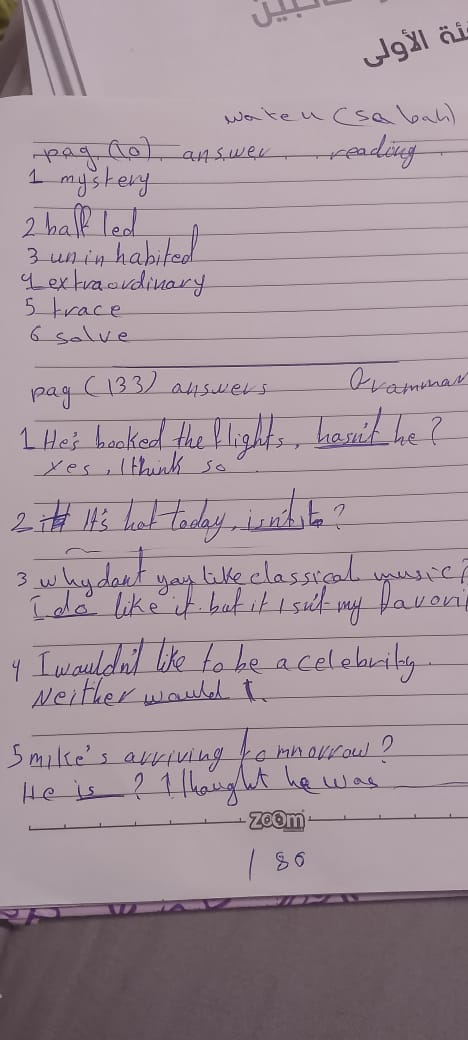 ئة الأولى
waten (sabah)
pag (10) answer reading
1 mystery
2 baffled
3 uninhabited
4 extraordinary
5 trace
6 solve
pag (133) answers Grammar
1 He's booked the flights, hasn't he?
Yes, I think so
2 It's hot today, isn't it?
3 why don't you like classical music?
I do like it. but it isn't my favori
4 I wouldn't like to be a celebrity.
Neither would I.
5 mike's arriving tomnorrow?
He is ? I thought he was
zoom
186